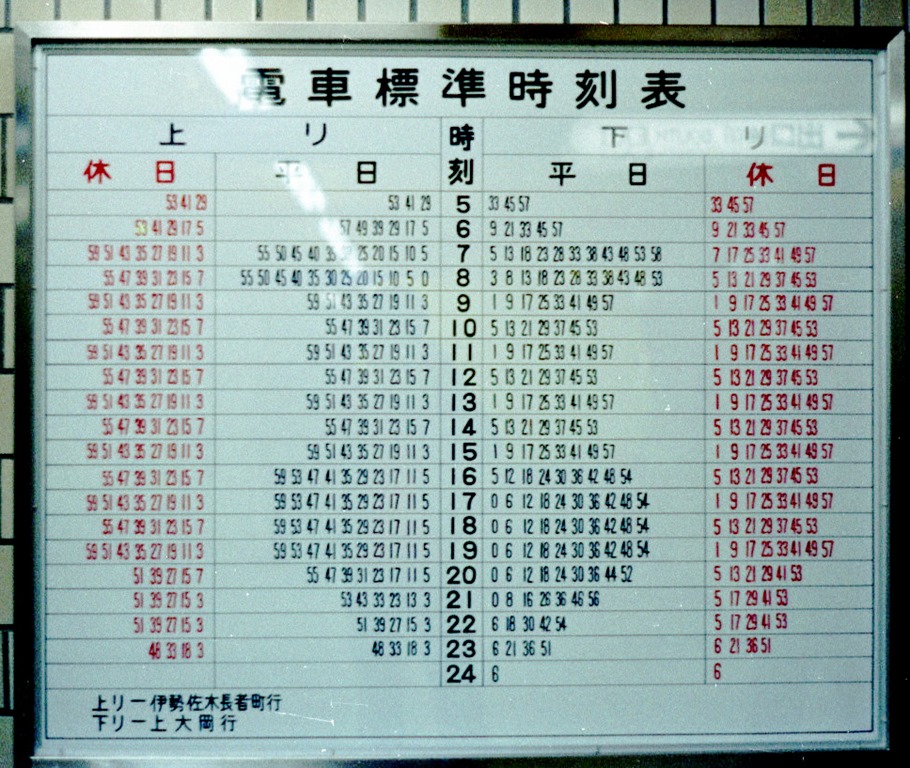 電車標準時刻表
上り 時刻 下り
休日 平日 平日 休日
53 41 29 53 41 29 5 33 45 57 33 45 57
53 41 29 17 5 57 49 39 29 17 5 6 9 21 33 45 57 9 21 33 45 57
59 51 43 35 27 19 11 3 55 50 45 40 35 25 20 15 10 5 7 5 13 18 23 28 33 38 43 48 53 58 7 17 25 33 41 49 57
55 47 39 31 23 15 7 55 50 45 40 35 30 25 20 15 10 5 0 8 3 8 13 18 23 28 33 38 43 48 53 5 13 21 29 37 45 53
59 51 43 35 27 19 11 3 59 51 43 35 27 19 11 3 9 1 9 17 25 33 41 49 57 1 9 17 25 33 41 49 57
55 47 39 31 23 15 7 55 47 39 31 23 15 7 10 5 13 21 29 37 45 53 5 13 21 29 37 45 53
59 51 43 35 27 19 11 3 59 51 43 35 27 19 11 3 11 1 9 17 25 33 41 49 57 1 9 17 25 33 41 49 57
55 47 39 31 23 15 7 55 47 39 31 23 15 7 12 5 13 21 29 37 45 53 5 13 21 29 37 45 53
59 51 43 35 27 19 11 3 59 51 43 35 27 19 11 3 13 1 9 17 25 33 41 49 57 1 9 17 25 33 41 49 57
55 47 39 31 23 15 7 55 47 39 31 23 15 7 14 5 13 21 29 37 45 53 5 13 21 29 37 45 53
59 51 43 35 27 19 11 3 59 51 43 35 27 19 11 3 15 1 9 17 25 33 41 49 57 1 9 17 25 33 41 49 57
55 47 39 31 23 15 7 59 53 47 41 35 29 23 17 11 5 16 5 12 18 24 30 36 42 48 54 5 13 21 29 37 45 53
59 51 43 35 27 19 11 3 59 53 47 41 35 29 23 17 11 5 17 0 6 12 18 24 30 36 42 48 54 1 9 17 25 33 41 49 57
55 47 39 31 23 15 7 59 53 47 41 35 29 23 17 11 5 18 0 6 12 18 24 30 36 42 48 54 5 13 21 29 37 45 53
59 51 43 35 27 19 11 3 59 53 47 41 35 29 23 17 11 5 19 0 6 12 18 24 30 36 42 48 54 1 9 17 25 33 41 49 57
51 39 27 15 7 55 47 39 31 23 17 11 5 20 0 6 12 18 24 30 36 44 52 5 13 21 29 41 53
51 39 27 15 3 53 43 33 23 13 3 21 0 8 16 26 36 46 56 5 17 29 41 53
51 39 27 15 3 51 39 27 15 3 22 6 18 30 42 54 5 17 29 41 53
48 33 18 3 48 33 18 3 23 6 21 36 51 6 21 36 51
24 6 6
上リー伊勢佐木長者町行
下リー上大岡行